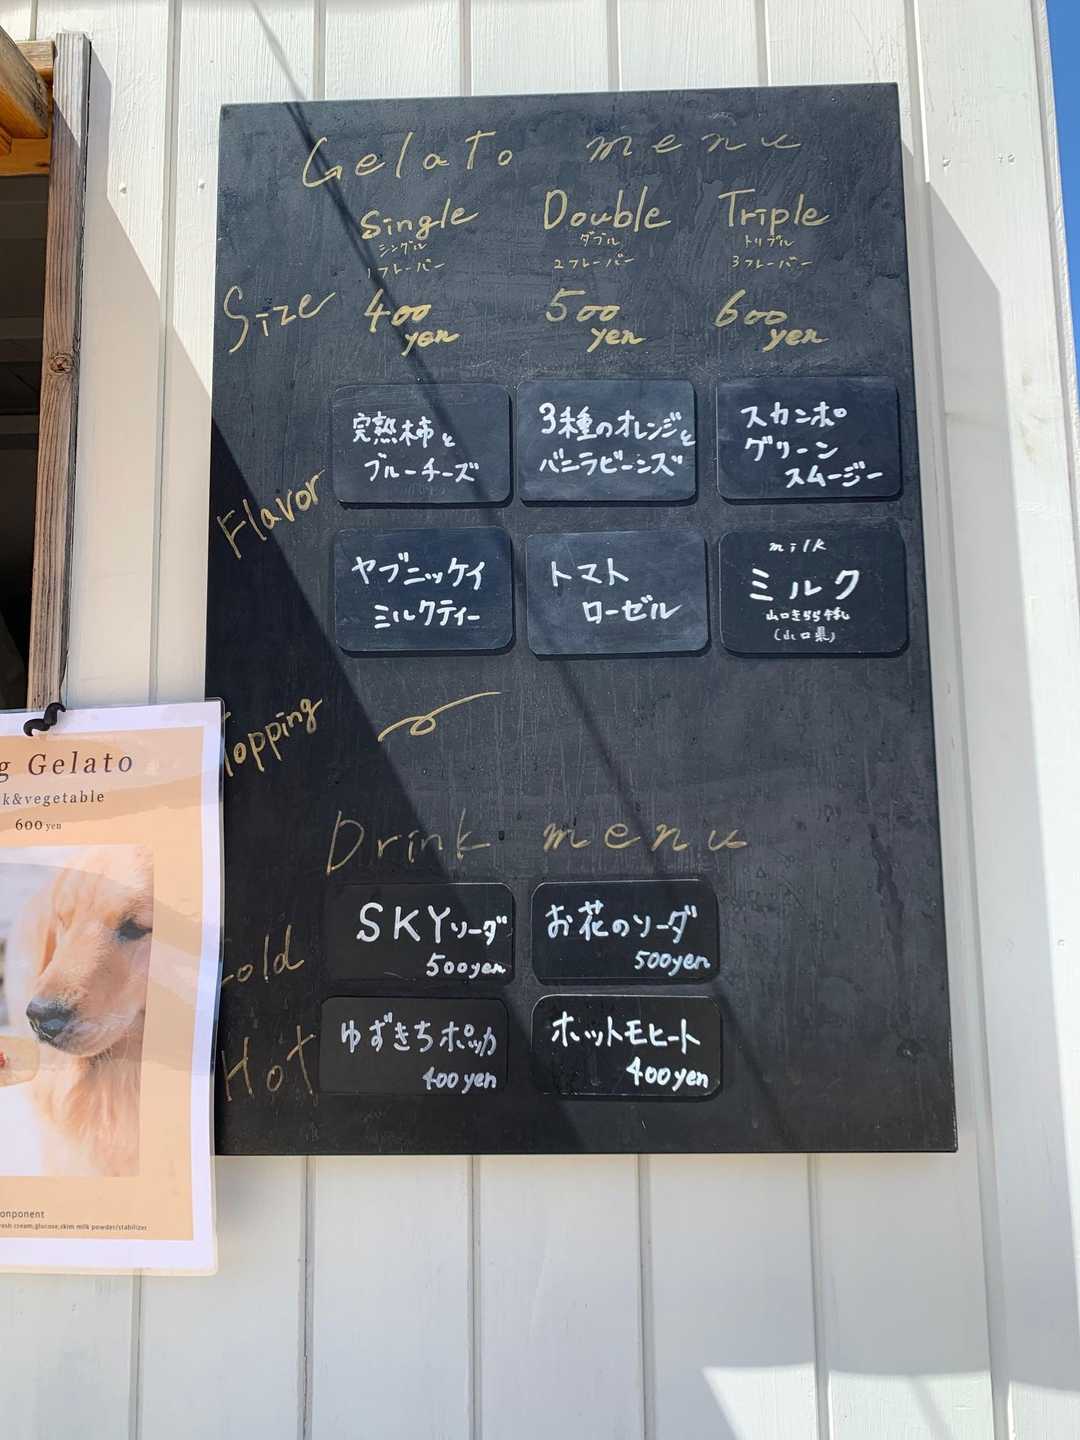 Gelato menu
Single Double Triple
シングル ダブル トリプル
1フレーバー 2フレーバー 3フレーバー
Size 400 yen 500 yen 600 yen
Flavor
完熟柿と
ブルーチーズ
3種のオレンジと
バニラビーンズ
スカンポ
グリーン
スムージー
ヤブニッケイ
ミルクティー
トマト
ローゼル
milk
ミルク
山口きらら牛乳
(山口県)
Topping
Drink menu
Cold
SKYソーダ
500yen
お花のソーダ
500yen
Hot
ゆずきちポッカ
400yen
ホットモヒート
400yen
g Gelato
k&vegetable
600 yen
onponent
resh cream,glucose,skim milk powder/stabilizer